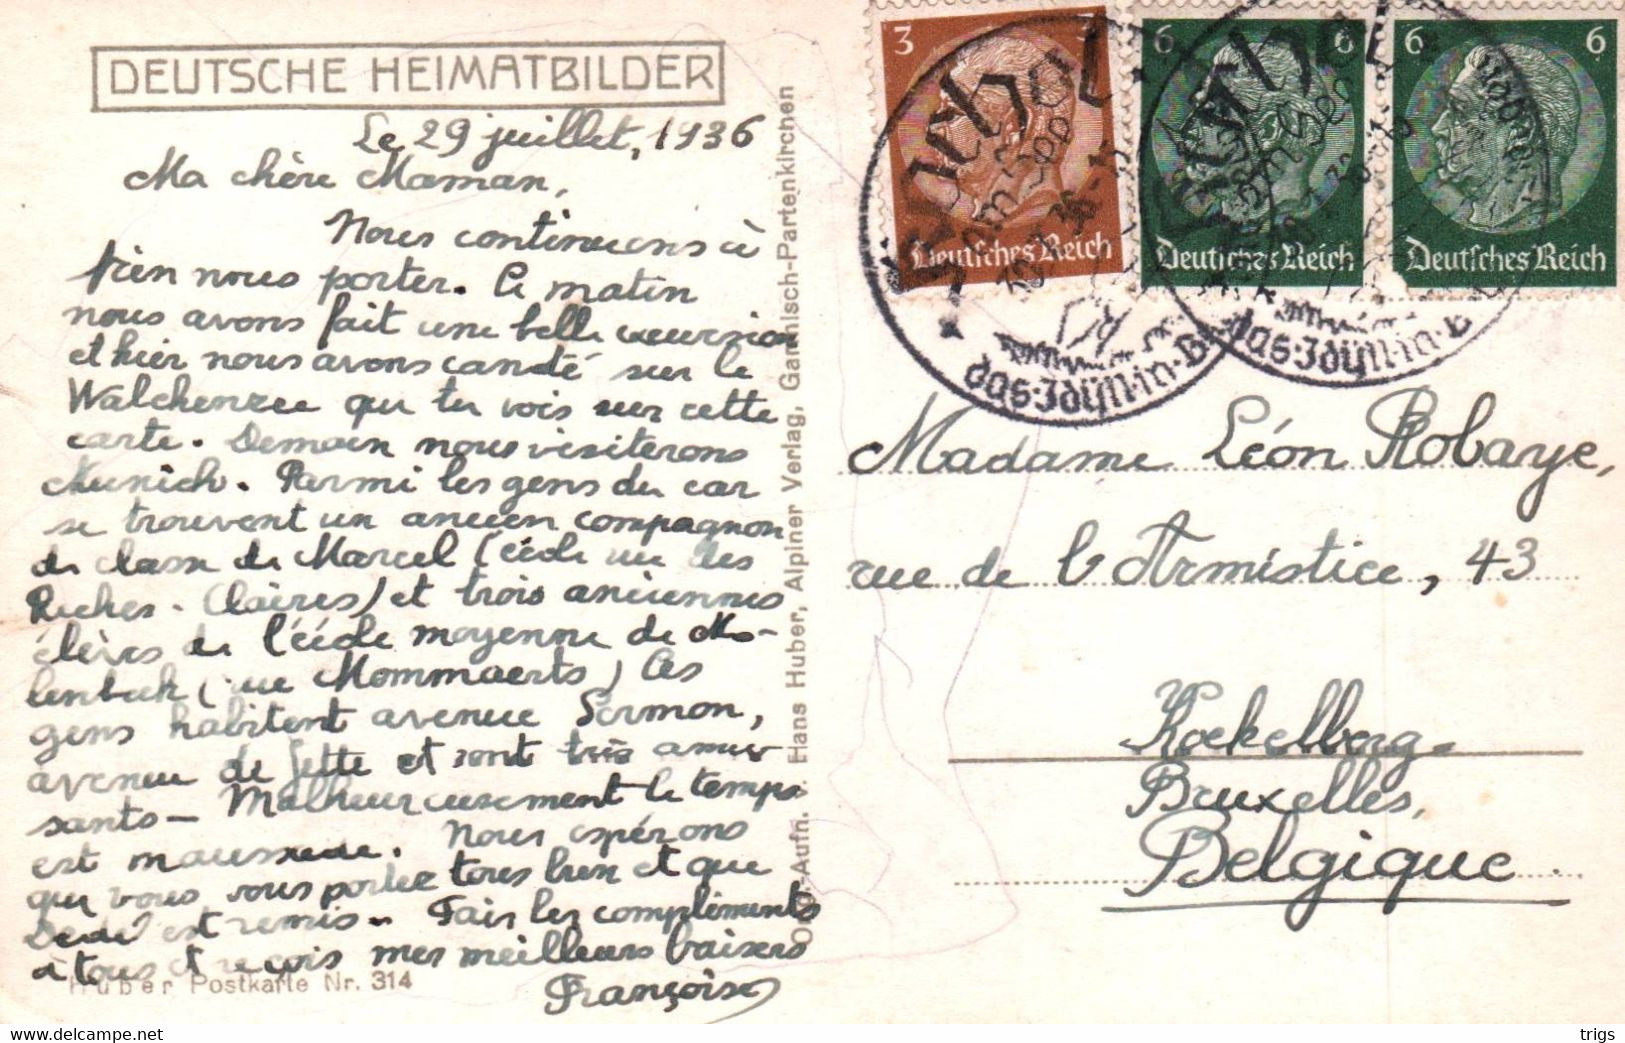 DEUTSCHE HEIMATBILDER
Le 29 juillet, 1936
Ma chère Maman,
Nous continuons à
bien nous porter. Ce matin
nous avons fait une belle excursion
et hier nous avons canoté sur le
Walchensee que tu vois sur cette
carte. Demain nous visiterons
Munich. Parmi les gens du car
se trouvent un ancien compagnon
de classe de Marcel (école rue des
Riches-Claires) et trois anciennes
élèves de l'école moyenne de Mo-
lenbeek (rue Mommaerts) Ces
gens habitent avenue Sermon,
avenue de Jette et sont très amu-
sants — Malheureusement le temps
est maussade. Nous espérons
que vous vous portez tous bien et que
Dédé est remis. Fais les compliments
à tous et reçois mes meilleurs baisers
Françoise
Huber Postkarte Nr. 314
Orig.-Aufn. v. Hans Huber, Alpiner Verlag, Garmisch-Partenkirchen
3 3
Deutsches Reich
6 6
Deutsches Reich
6 6
Deutsches Reich
Das Idyll in
Das Idyll in
Madame Léon Robaye,
rue de l'Armistice, 43
Koekelberg-
Bruxelles,
Belgique
delcampe.net
trigs